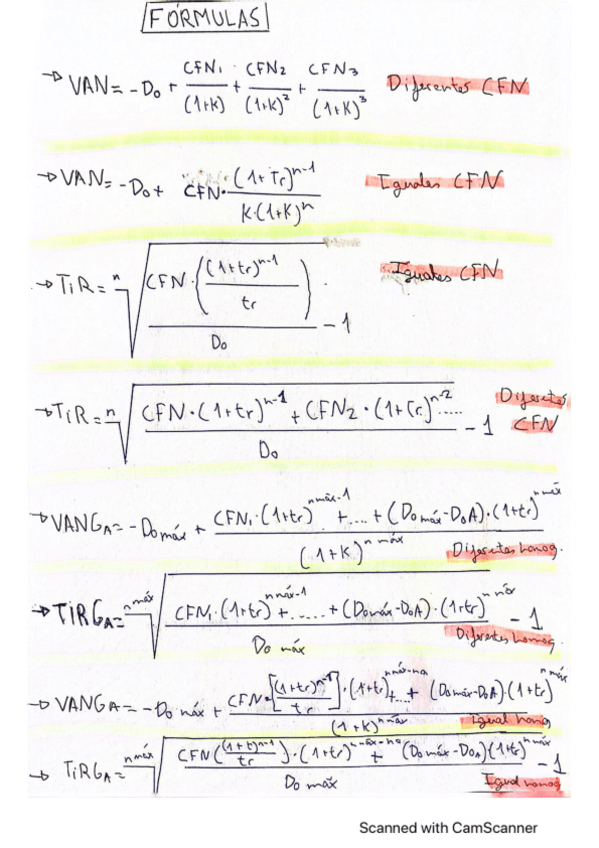 FÓRMULAS
→ VAN = -D₀ + CFN₁/(1+K) + CFN₂/(1+K)² + CFN₃/(1+K)³ Diferentes CFN
→ VAN = -D₀ + CFN · (1+Tr)ⁿ⁻¹/K·(1+K)ⁿ Iguales CFN
→ TiR = ⁿ√(CFN·((1+tr)ⁿ⁻¹/tr)/D₀) - 1 Iguales CFN
→ TiR = ⁿ√(CFN·(1+tr)ⁿ⁻¹ + CFN₂·(1+Tr)ⁿ⁻² ...../D₀) - 1 Diferetes CFN
→ VANGA = -D₀ máx + CFN₁·(1+tr)^(n máx-1) + .... + (D₀ máx - D₀A)·(1+tr)^(n máx)/(1+K)^(n máx) Diferetes homog.
→ TiRGA = ^(n máx)√(CFN₁·(1+tr)^(n máx-1) + ..... + (D₀ máx - D₀A)·(1+tr)^(n máx)/D₀ máx) - 1 Diferentes homog.
→ VANGA = -D₀ máx + CFN·[(1+tr)ⁿ⁻¹/tr]·(1+tr)^(n máx-na) + .... + (D₀ máx - D₀A)·(1+tr)^(n máx)/(1+K)^(n máx) Igual homog
→ TiRGA = ^(n máx)√(CFN((1+t)ⁿ⁻¹/tr)·(1+tr)^(n máx-na) + (D₀ máx - D₀A)(1+tr)^(n máx)/D₀ máx) - 1 Igual homog
Scanned with CamScanner